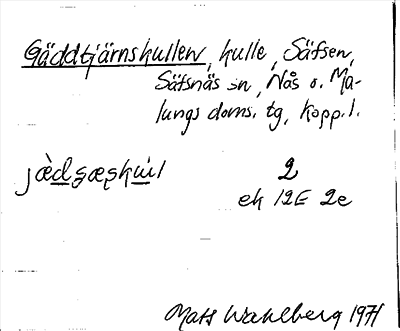 Gäddtjärnskullen, kulle, Säfsen,
Säfsnäs sn, Nås o. Ma-
lungs doms. tg, Kopp. l.
jæ̀dʂæʂku̇l 2
ek 12E 2e
Mats Wahlberg 1971